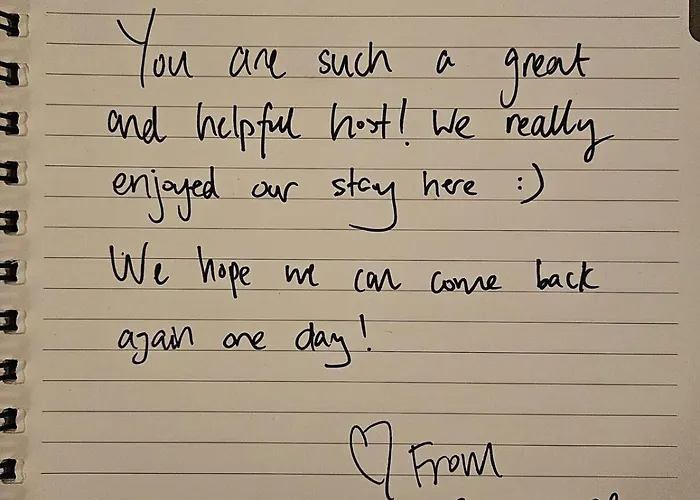 You are such a great
and helpful host! We really
enjoyed our stay here :)
We hope we can come back
again one day!
♡ From